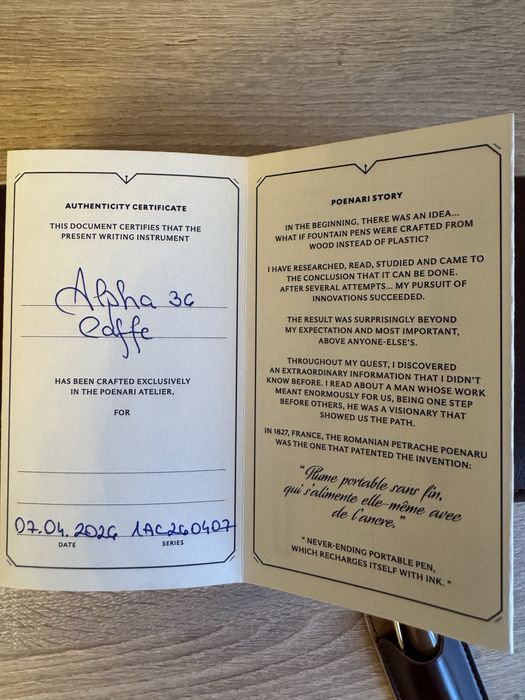 AUTHENTICITY CERTIFICATE
THIS DOCUMENT CERTIFIES THAT THE
PRESENT WRITING INSTRUMENT
Alpha 36
Caffe
HAS BEEN CRAFTED EXCLUSIVELY
IN THE POENARI ATELIER,
FOR
07.04.2026 1AC260407
DATE SERIES
POENARI STORY
IN THE BEGINNING, THERE WAS AN IDEA...
WHAT IF FOUNTAIN PENS WERE CRAFTED FROM
WOOD INSTEAD OF PLASTIC?
I HAVE RESEARCHED, READ, STUDIED AND CAME TO
THE CONCLUSION THAT IT CAN BE DONE.
AFTER SEVERAL ATTEMPTS... MY PURSUIT OF
INNOVATIONS SUCCEEDED.
THE RESULT WAS SURPRISINGLY BEYOND
MY EXPECTATION AND MOST IMPORTANT,
ABOVE ANYONE-ELSE'S.
THROUGHOUT MY QUEST, I DISCOVERED
AN EXTRAORDINARY INFORMATION THAT I DIDN'T
KNOW BEFORE. I READ ABOUT A MAN WHOSE WORK
MEANT ENORMOUSLY FOR US, BEING ONE STEP
BEFORE OTHERS, HE WAS A VISIONARY THAT
SHOWED US THE PATH.
IN 1827, FRANCE, THE ROMANIAN PETRACHE POENARU
WAS THE ONE THAT PATENTED THE INVENTION:
"Plume portable sans fin,
qui s'alimente elle-même avec
de l'ancre."
" NEVER-ENDING PORTABLE PEN,
WHICH RECHARGES ITSELF WITH INK. "